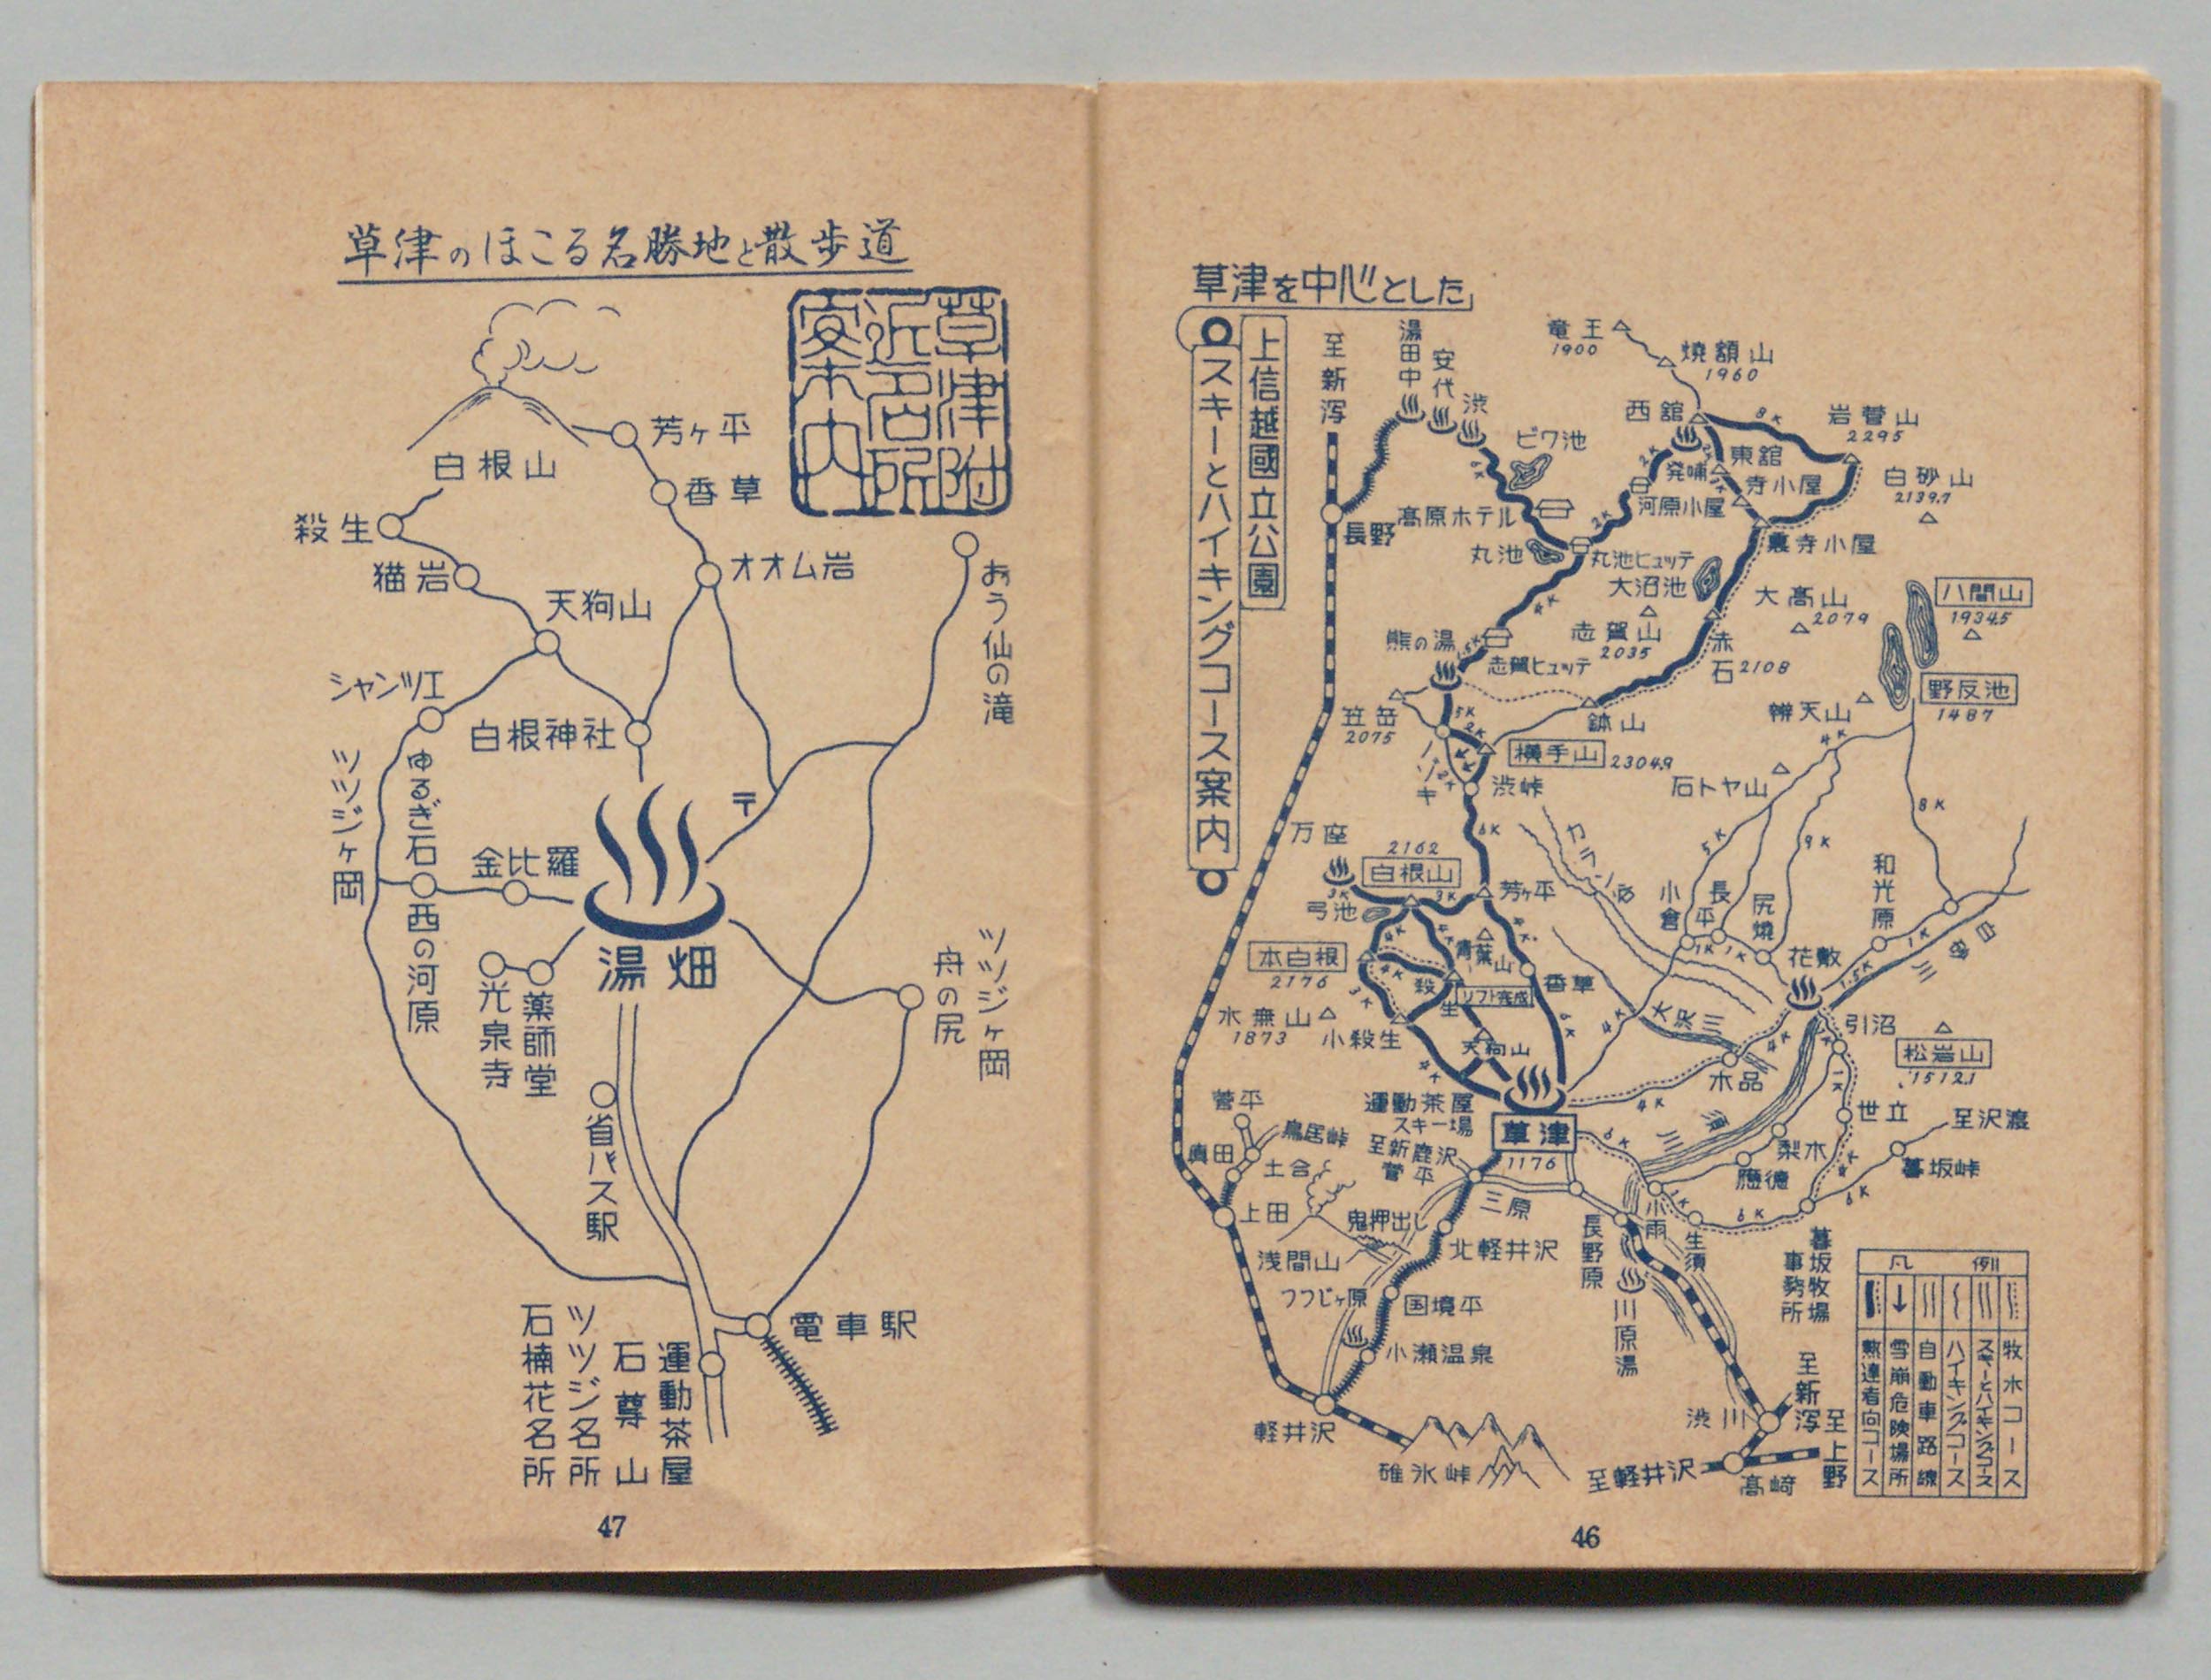 草津を中心とした
上信越國立公園
スキーとハイキングコース案内
至新潟
湯田中
安代
渋
竜王
1900
焼額山
1960
西舘
8K
岩菅山
2295
ビワ池
発哺
東舘
寺小屋
白砂山
2139.7
2K
河原小屋
高原ホテル
長野
2K
丸池
丸池ヒュッテ
裏寺小屋
大沼池
4K
大高山
2079
八間山
1934.5
熊の湯
志賀山
2035
志賀ヒュッテ
赤石2108
野反池
1487
笠岳
2075
鉢山
辨天山
4K
5K
2K
横手山
2304.9
ノゾキ
渋峠
石トヤ山
8K
6K
万座
2162
白根山
5K
9K
3K
3K
芳ヶ平
弓池
小倉
長平
尻焼
和光原
4K
青葉山
本白根
2176
4K
殺生
リフト完成
香草
1K
1K
花敷
1K
白砂川
1.5K
3K
水無山
1873
小殺生
6K
4K
大沢川
引沼
天狗山
4K
木品
松岩山
1512.1
4K
1K
菅平
運動茶屋
スキー場
草津
1176
4K
6K
須川
世立
至沢渡
鳥居峠
真田
土合
至新鹿沢
菅平
梨木
應徳
暮坂峠
4K
6K
上田
鬼押出し
三原
小雨
1K
6K
生須
長野原
浅間山
北軽井沢
暮坂牧場
事務所
つつじヶ原
国境平
川原湯
小瀬温泉
至新潟
渋川
軽井沢
碓氷峠
至軽井沢
高崎
至上野
凡例
熟達者向コース
雪崩危険場所
自動車路線
ハイキングコース
スキーとハイキングコース
牧水コース
46
草津のほこる名勝地と散歩道
草津附
近名所
案内
芳ヶ平
白根山
香草
殺生
猫岩
オオム岩
おう仙の滝
天狗山
シャンツェ
白根神社
ツツジヶ岡
ゆるぎ石
〒
金比羅
西の河原
湯畑
舟の尻
ツツジヶ岡
光泉寺
薬師堂
省バス駅
電車駅
運動茶屋
石尊山
ツツジ名所
石楠花名所
47